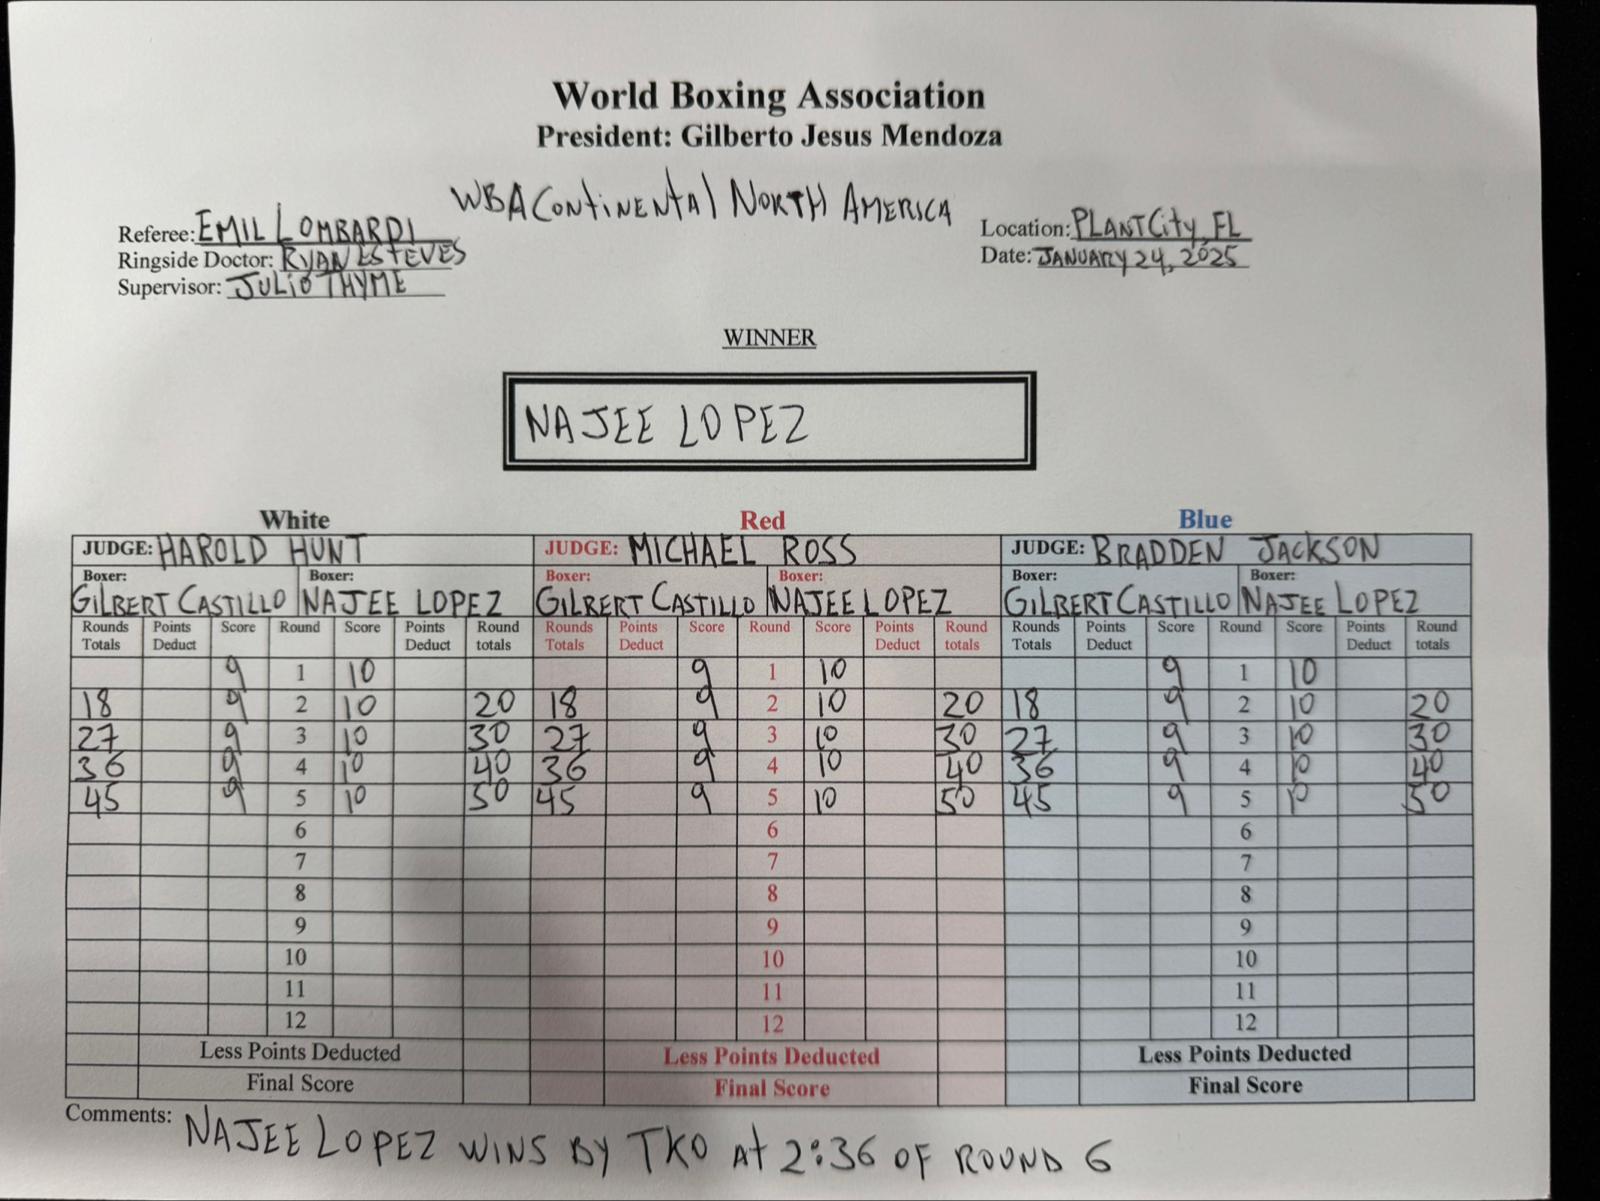 World Boxing Association
President: Gilberto Jesus Mendoza
WBA Continental North America
Referee: EMIL LOMBARDI
Ringside Doctor: RYAN ESTEVES
Supervisor: JULIO THYME
Location: PLANT City, FL
Date: JANUARY 24, 2025
WINNER
NAJEE LOPEZ
White Red Blue
JUDGE: HAROLD HUNT JUDGE: MICHAEL ROSS JUDGE: BRADDEN JACKSON
Boxer: Boxer: Boxer: Boxer: Boxer: Boxer:
GILBERT CASTILLO NAJEE LOPEZ GILBERT CASTILLO NAJEE LOPEZ GILBERT CASTILLO NAJEE LOPEZ
Rounds Points Score Round Score Points Round Rounds Points Score Round Score Points Round Rounds Points Score Round Score Points Round
Totals Deduct Deduct totals Totals Deduct Deduct totals Totals Deduct Deduct totals
9 1 10 9 1 10 9 1 10
18 9 2 10 20 18 9 2 10 20 18 9 2 10 20
27 9 3 10 30 27 9 3 10 30 27 9 3 10 30
36 9 4 10 40 36 9 4 10 40 36 9 4 10 40
45 9 5 10 50 45 9 5 10 50 45 9 5 10 50
6 6 6
7 7 7
8 8 8
9 9 9
10 10 10
11 11 11
12 12 12
Less Points Deducted Less Points Deducted Less Points Deducted
Final Score Final Score Final Score
Comments: NAJEE LOPEZ WINS BY TKO At 2:36 OF ROUND 6